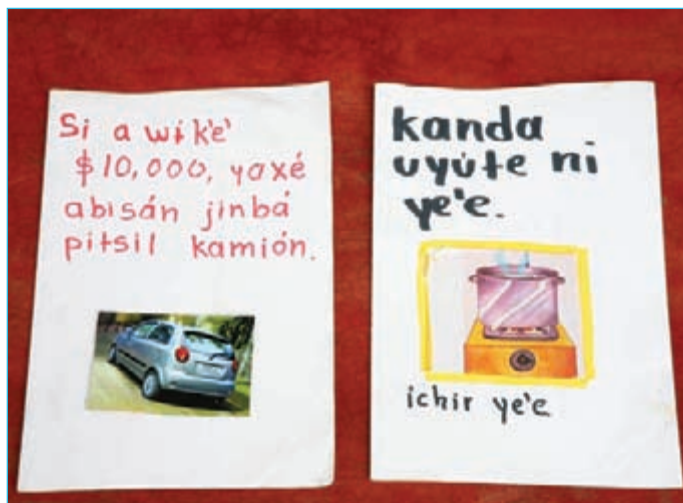 Si a wí k'e'
$10,000, yaxé
abisán jinbá
pitsil kamión.
kanda
uyúte ni
ye'e.
ichir ye'e